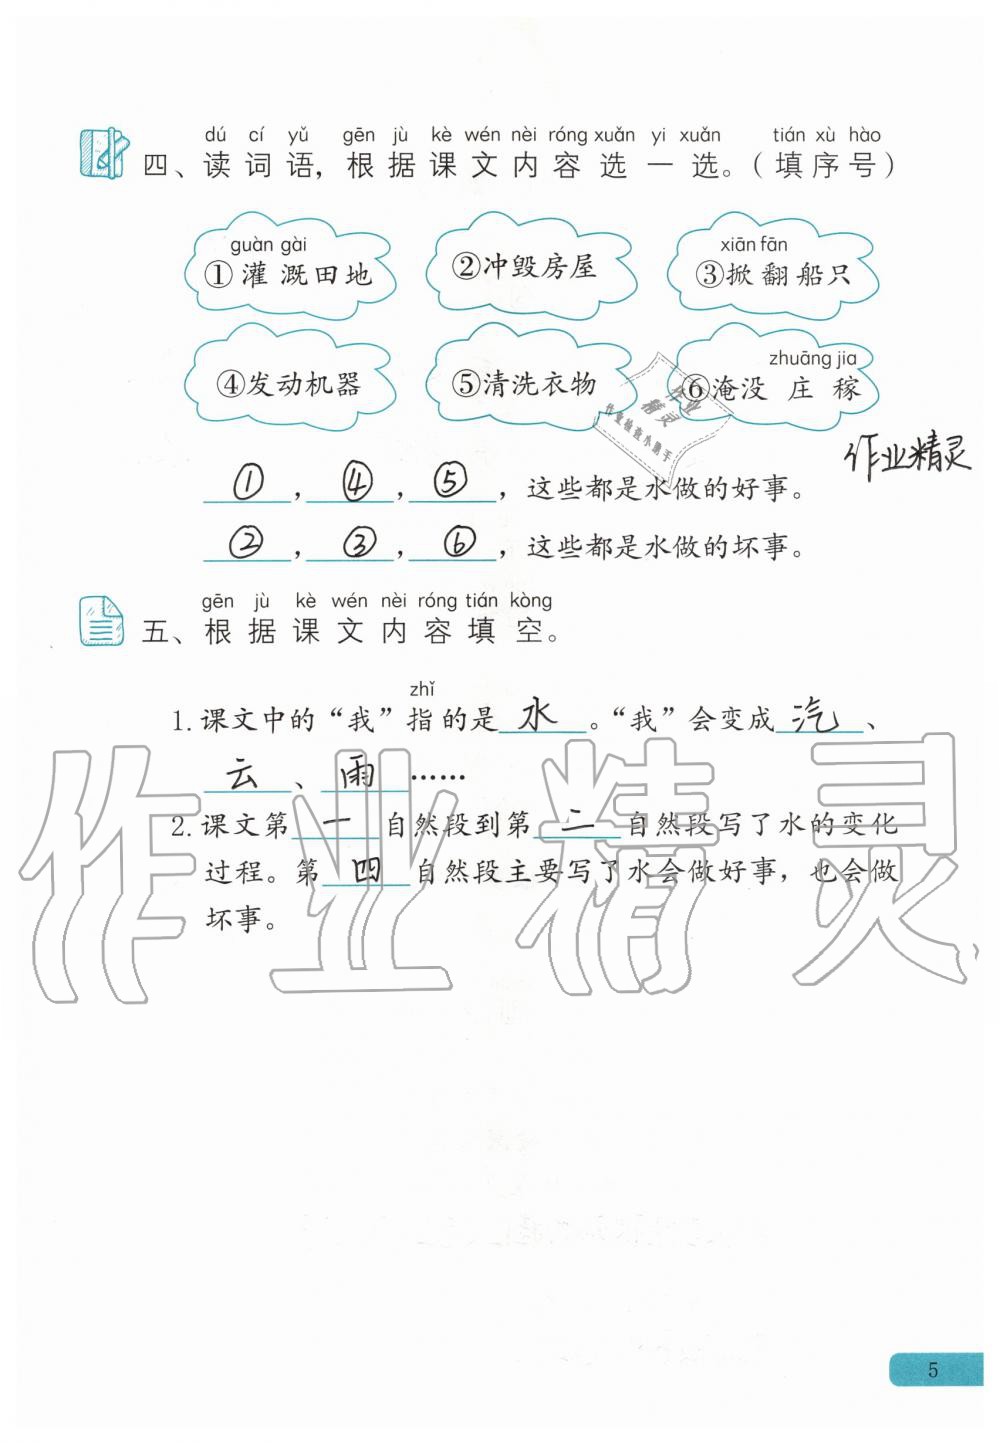 dú cí yǔ gēn jù kè wén nèi róng xuǎn yi xuǎn tián xù hào
四、读词语，根据课文内容选一选。（填序号）
guàn gài
①灌溉田地
②冲毁房屋
xiān fān
③掀翻船只
④发动机器
⑤清洗衣物
zhuāng jia
⑥淹没庄稼
作业
精灵
作业检查小助手
作业精灵
①，④，⑤，这些都是水做的好事。
②，③，⑥，这些都是水做的坏事。
gēn jù kè wén nèi róng tián kòng
五、根据课文内容填空。
zhǐ
1.课文中的“我”指的是水。“我”会变成汽、
云、雨……
2.课文第一自然段到第二自然段写了水的变化
过程。第四自然段主要写了水会做好事，也会做
坏事。
作业精灵
5